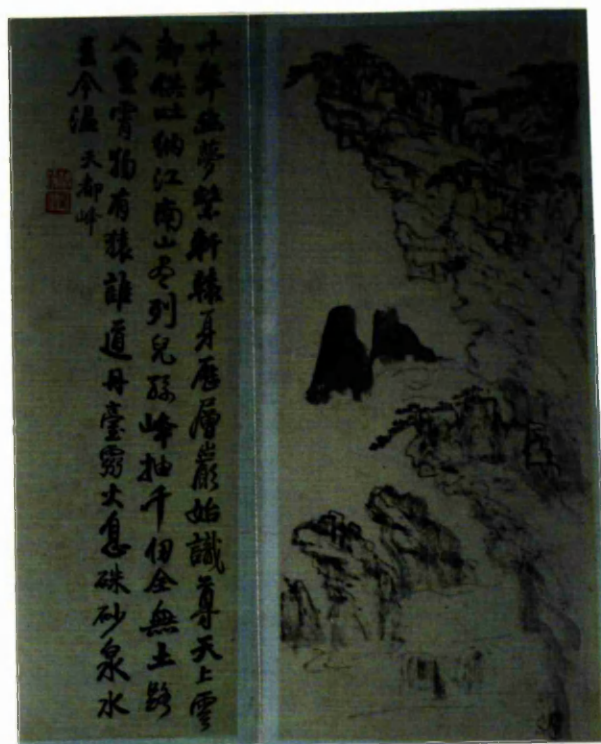 十年幽夢縈軒轅身歷層巖始識尊天上雲
都供吐納江南山盡列兒孫峰抽千仞全無土路
入重霄獨有猿誰道丹臺竈火息硃砂泉水
至今溫 天都峰